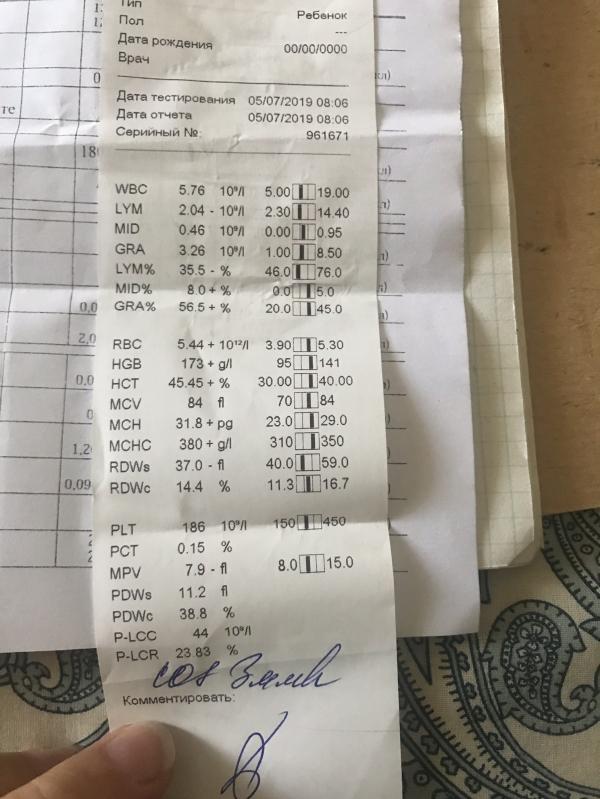 Тип Ребенок
Пол ---
Дата рождения 00/00/0000
Врач
Дата тестирования 05/07/2019 08:06
Дата отчета 05/07/2019 08:06
Серийный №: 961671
WBC 5.76 10⁹/l 5.00 19.00
LYM 2.04 - 10⁹/l 2.30 14.40
MID 0.46 10⁹/l 0.00 0.95
GRA 3.26 10⁹/l 1.00 8.50
LYM% 35.5 - % 46.0 76.0
MID% 8.0 + % 0.0 5.0
GRA% 56.5 + % 20.0 45.0
RBC 5.44 + 10¹²/l 3.90 5.30
HGB 173 + g/l 95 141
HCT 45.45 + % 30.00 40.00
MCV 84 fl 70 84
MCH 31.8 + pg 23.0 29.0
MCHC 380 + g/l 310 350
RDWs 37.0 - fl 40.0 59.0
RDWc 14.4 % 11.3 16.7
PLT 186 10⁹/l 150 450
PCT 0.15 %
MPV 7.9 - fl 8.0 15.0
PDWs 11.2 fl
PDWc 38.8 %
P-LCC 44 10⁹/l
P-LCR 23.83 %
Комментировать: